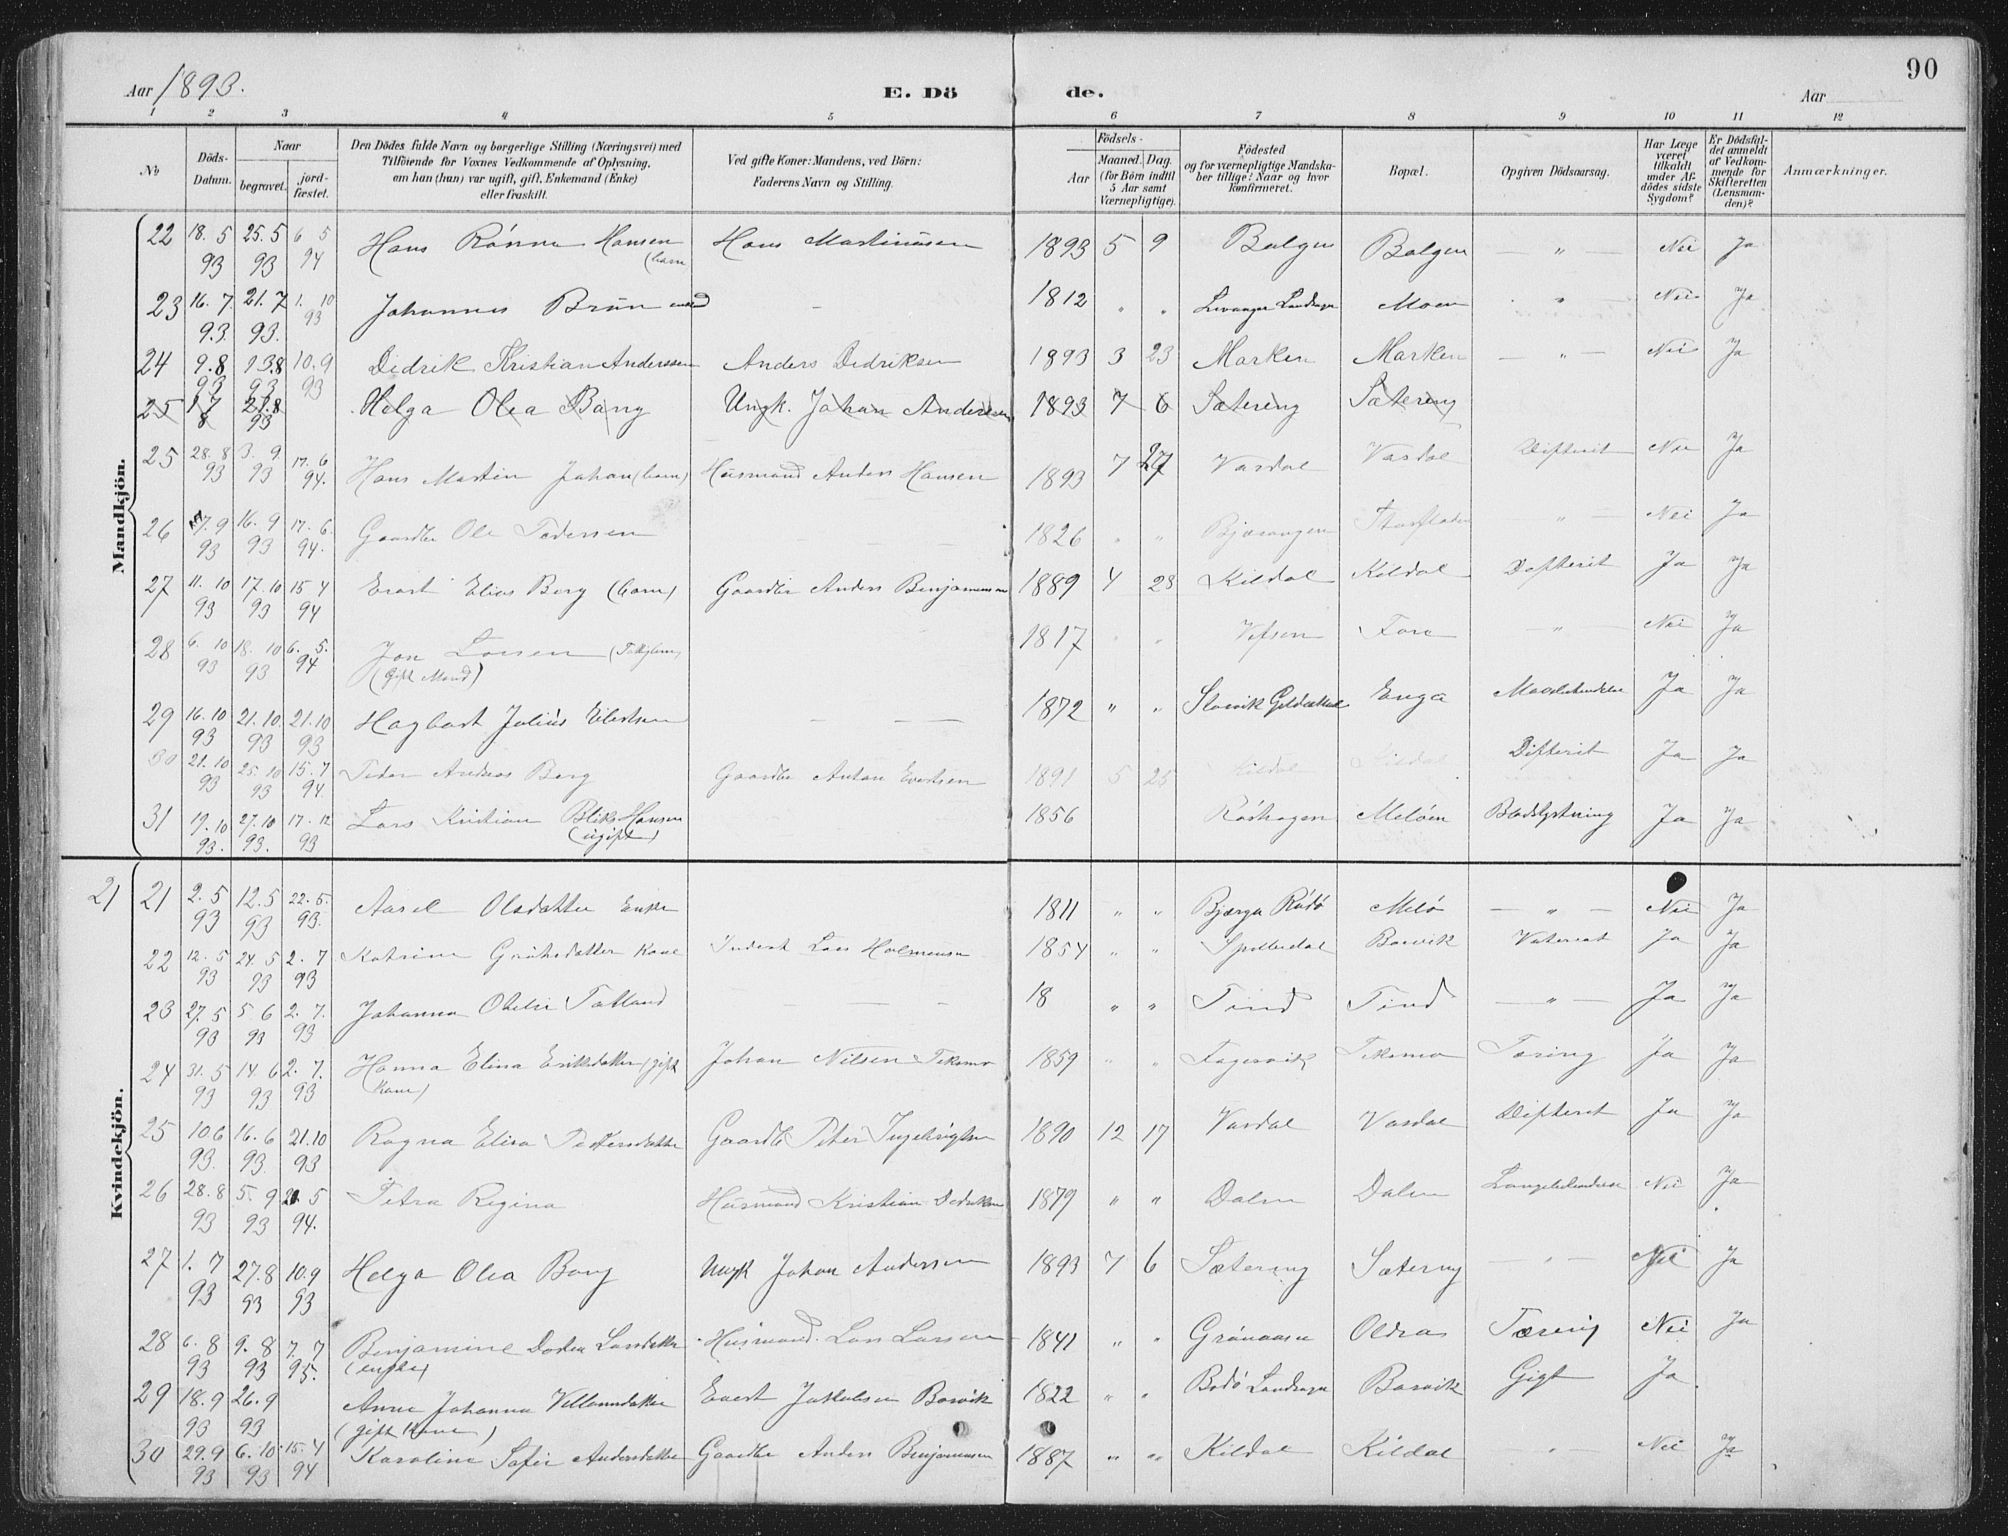 90
Aar 1893.
E. Dö
de.
Aar
1 2 3 4 5 6 7 8 9 10 11 12
No
Döds-Datum.
Naar
begravet.
jord-fæstet.
Den Dödes fulde Navn og borgerlige Stilling (Næringsvei) med
Tilföiende for Voxnes Vedkommende af Oplysning,
om han (hun) var ugift, gift, Enkemand (Enke)
eller fraskilt.
Ved gifte Koner: Mandens, ved Börn:
Faderens Navn og Stilling.
Födsels-
Aar
Maaned. Dag.
(for Börn indtil
5 Aar samt
Værnepligtige).
Födested
og for værnepligtige Mandska-
ber tillige: Naar og hvor
konfirmeret.
Bopæl.
Opgiven Dödsaarsag.
Har Læge
været
tilkaldt
under Af-
dödes sidste
Sygdom?
Er Dödsfal-
det anmeldt
af Vedkom-
mende for
Skifteretten
(Lensman-
den)?
Anmærkninger.
Mandkjön.
22 18. 5 93 25. 5 93 6 5 94 Hans Rønne Hansen (barn Hans Martinussen 1893 5 9 Bolgen Bolgen — " — Nei Ja
23 16. 7. 93. 21. 7 93. 1. 10 93 Johannes Brun - 1812 " " Levanger Landsogn Moen " Nei Ja
24 9. 8 93 13. 8 93 10. 9 93 Didrik Kristian Anderssen Anders Dedriksen 1893 3 23 Marken Marken — " — Nei Ja
25 17 8 27. 8 93 Helga Olea Bang Ungk. Johan Anderssen 1893 7 6 Sætering Sætering
25 28. 8 93 3. 9. 93 17. 6 94. Hans Martin Johan (barn) Husmand Anders Hansen 1893 7 27 Vasdal Vasdal Difterit Nei Ja
26 7. 9 93 16. 9 93 17. 6 94. Gaardbr Ole Pedersen 1826 " " Bjærangen " — Nei Ja
27 11. 10 93 17. 10 93 15 4 94 Evart Elias Berg (barn) Gaardbr Anders Benjaminsen 1889 4 23 Kildal Kildal Difterit Ja Ja
28 6. 10 93 18. 10 93 6. 5. 94 Jon Larsen (Gift Mand) 1817 " " Vefsen Fore — " — Nei Ja
29 16. 10 93 21. 10. 93 21. 10 93 Hagbart Julius Eilertsen — — 1872 " " Støvik Gildeskaal Enga Ja Ja
30 21. 10 93 25. 10 93 15. 7 94. Peder Andreas Berg Gaardbr Anton Evertsen 1891 5 25 Kildal Kildal Difterit Ja Ja
31 19. 10 93. 27. 10 93. 17. 12 93 Lars Kristian Bliks Hansen (ugift) 1856 Rødhagen Meløen Blodstyrtning Ja Ja
Kvindekjön.
21 21 2. 5 93 12. 5 93 22. 5. 93. Aasel Olsdatter Enke 1811 " " Bjærga Rødø Melø — " — Nei Ja
22 12. 5 93 24. 5 93 2. 7 93 Katrine Grøttesdatter Kone Inderst Lars Holmensen 1854 " " Spilderdal Bosvik Ja Ja
23 27. 5 93 5. 6 93 2. 7. 93 Johanna Tolland — — - 18 " " Tind Tind — " — Ja Ja
24 31. 5 93 14. 6 93 2. 7. 93 Hanna Elina Eriksdatter (gift Kone) Johan Nilsen Teksmo 1859 " " Fagervik Teksmo Tæring Ja Ja
25 10. 6 93. 16. 6 93. 21. 10 93 Ragna Elisa Pettersdatter Gaardbr Peter Ingebrigtsen 1890 12 17 Vasdal Vasdal Difterit Ja Ja
26 28. 8 93 5. 9 93 5 94. Petra Regina Husmand Kristian Dedriksen 1879 " " Dalen Dalen Lungebetændelse Nei Ja
27 1. 7 93 27. 8 93 10. 9 93 Helga Olea Bang Ungk Johan Anderssen 1893 7 6 Sætering Sætering " — Nei Ja
28 6. 8 93 9. 8 93 7. 7 95. Benjamine Dortea Larsdatter (enke) Husmand Lars Larsen 1841 " " Grønaasen Oldra Tæring Nei Ja
29 18. 9 93 26. 9 93 Anne Johanna Villumsdatter (gift Kone) Evert Jakobsen Bosvik 1822 " " Bodø Landsogn Bosvik Gigt Ja
30 29. 9 93 6. 10. 93 15. 4 94 Karoline Sofie Andersdatter Gaardbr Anders Benjaminsen 1887 " " Kildal Kildal " — Nei Ja